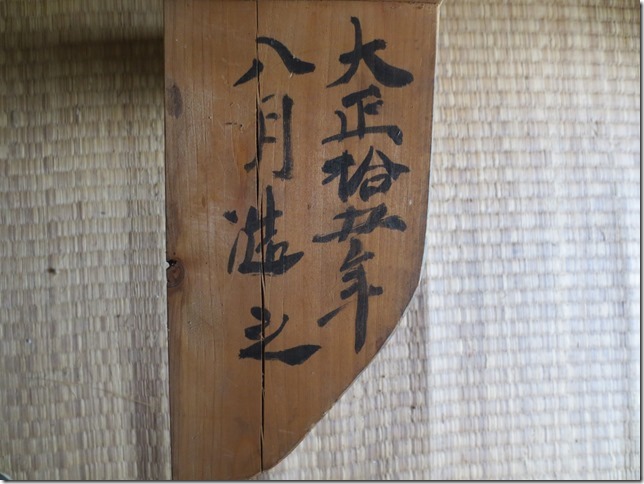 大正拾五年
八月造之